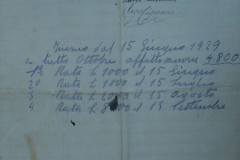 dal 15 Giugno 1929
a tutto Ottobre affitto annuo 4800
1ª Rata L 1000 il 15 Giugno
2ª Rata L 1000 il 15 Luglio
3 Rata L 2000 il 15 Agosto
4 Rata L il 15 Settembre